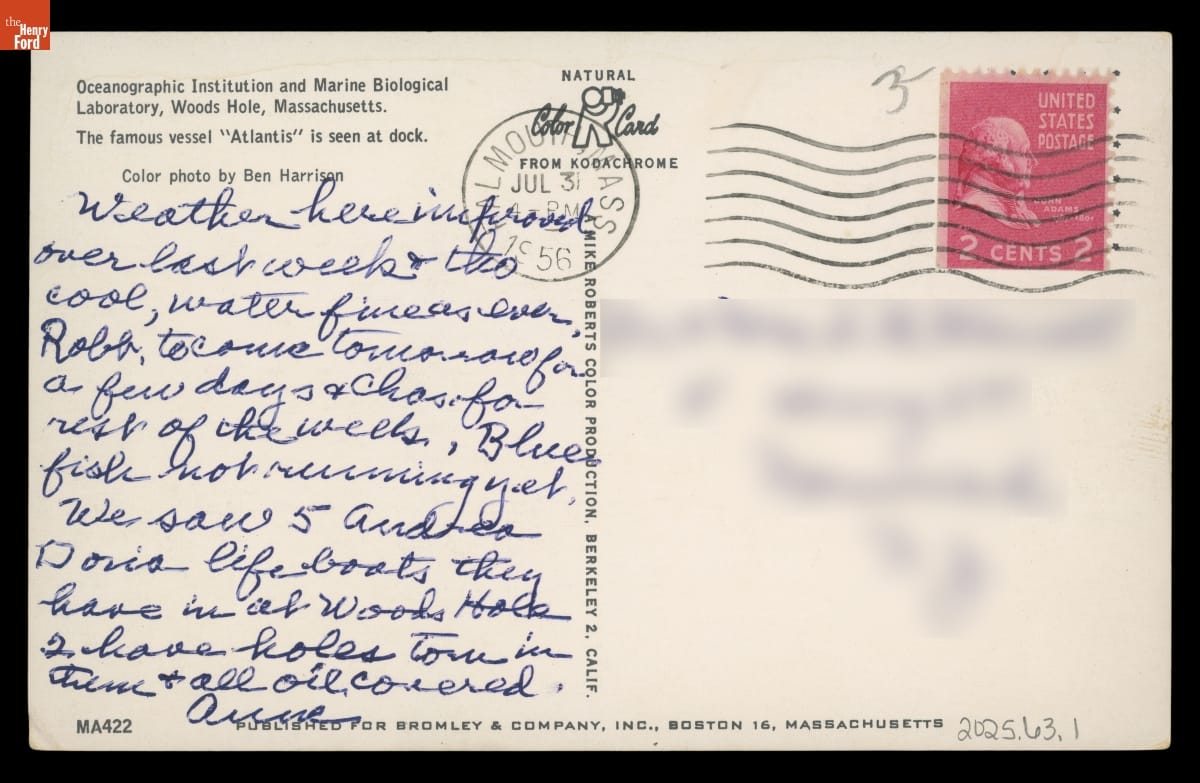 the
Henry
Ford
Oceanographic Institution and Marine Biological
Laboratory, Woods Hole, Massachusetts.
The famous vessel "Atlantis" is seen at dock.
Color photo by Ben Harrison
Weather here improved
over last week & tho
cool, water fine as ever.
Robb. to come tomorrow for
a few days & Chas. for
rest of the week. Blue
fish not running yet.
We saw 5 Andrea
Doria life boats they
have in at Woods Hole
2 have holes torn in
them & all oil covered.
Anne
MA422
NATURAL
Color Card
FROM KODACHROME
FALMOUTH, MASS
JUL 31
4-PM
1956
MIKE ROBERTS COLOR PRODUCTION, BERKELEY 2, CALIF.
3
UNITED
STATES
POSTAGE
JOHN
ADAMS
2 CENTS 2
PUBLISHED FOR BROMLEY & COMPANY, INC., BOSTON 16, MASSACHUSETTS
2025.63.1